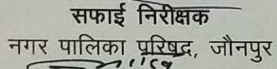 सफाई निरीक्षक
नगर पालिका परिषद, जौनपुर